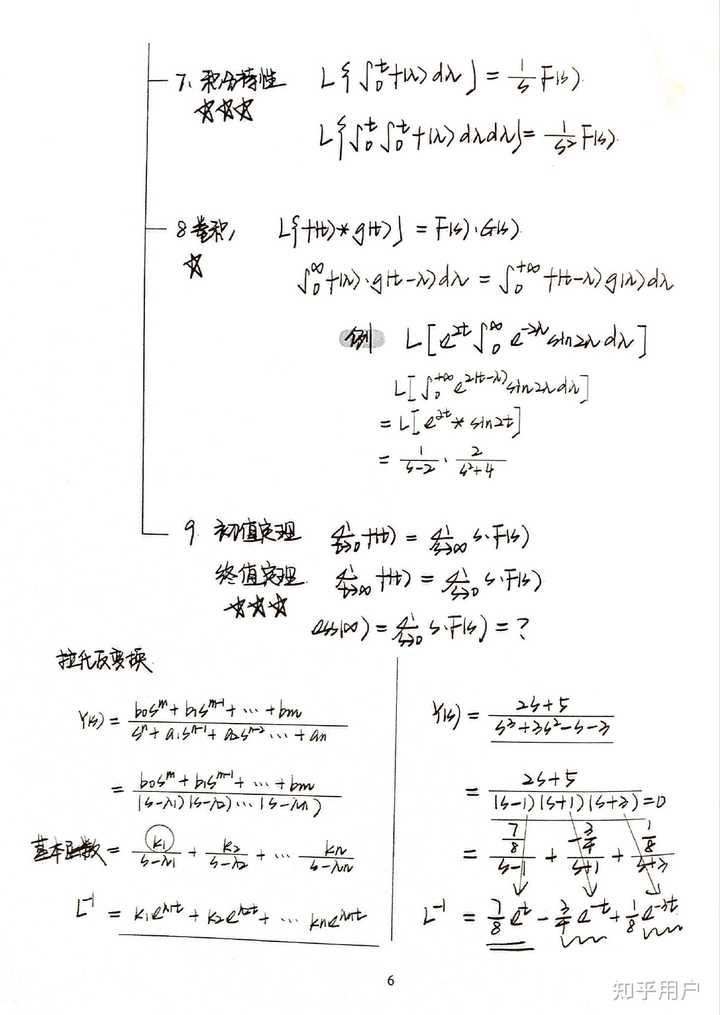 7、积分特性 L{∫₀ᵗ f(λ)dλ} = 1/s F(s)
☆☆☆
L{∫₀ᵗ∫₀ᵗ f(λ)dλdλ} = 1/s² F(s)
8 卷积, L{f(t)*g(t)} = F(s)·G(s)
☆
∫₀^∞ f(λ)·g(t-λ)dλ = ∫₀^+∞ f(t-λ)g(λ)dλ
例 L[e^2t ∫₀^∞ e^-2λ sin2λdλ]
L[∫₀^+∞ e^2(t-λ) sin2λdλ]
= L[e^2t * sin2t]
= 1/(s-2) · 2/(s²+4)
9 初值定理 li t→0 f(t) = li s→∞ s·F(s)
终值定理 li t→∞ f(t) = li s→0 s·F(s)
☆☆☆
ess(∞) = li s→0 s·F(s) = ?
拉氏反变换
Y(s) = (b0s^m + b1s^m-1 + ··· + bm)/(s^n + a1s^n-1 + a2s^n-2 ··· + an)
= (b0s^m + b1s^m-1 + ··· + bm)/((s-λ1)(s-λ2)···(s-λn))
基本函数 = k1/(s-λ1) + k2/(s-λ2) + ··· kn/(s-λn)
L⁻¹ = k1e^λ1t + k2e^λ2t + ··· kne^λnt
Y(s) = (2s+5)/(s³+3s²-s-3)
= (2s+5)/((s-1)(s+1)(s+3)) = 0
= (7/8)/(s-1) + (-3/4)/(s+1) + (1/8)/(s+3)
L⁻¹ = 7/8 e^t - 3/4 e^-t + 1/8 e^-3t
6
知乎用户